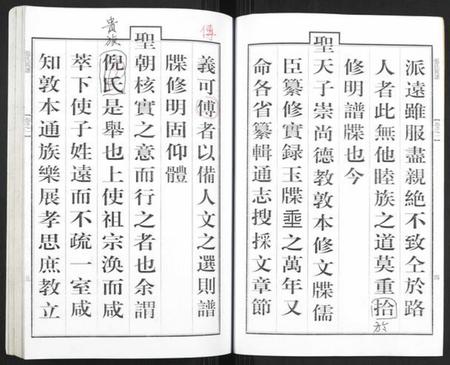 派遠雖服盡親絶不致仝於路
人者此無他睦族之道莫重拾
於
修明譜牒也今
聖天子崇尚德教敦本修文牒儒
臣纂修實録玉牒垂之萬年又
命各省纂輯通志搜採文章節
傳
義可傅者以備人文之選則譜
牒修明固仰體
聖朝核實之意而行之者也余謂
貴族
倪氏是舉也上使祖宗渙而咸
萃下使子姓遠而不疏一室咸
知敦本通族樂展孝思庶教立